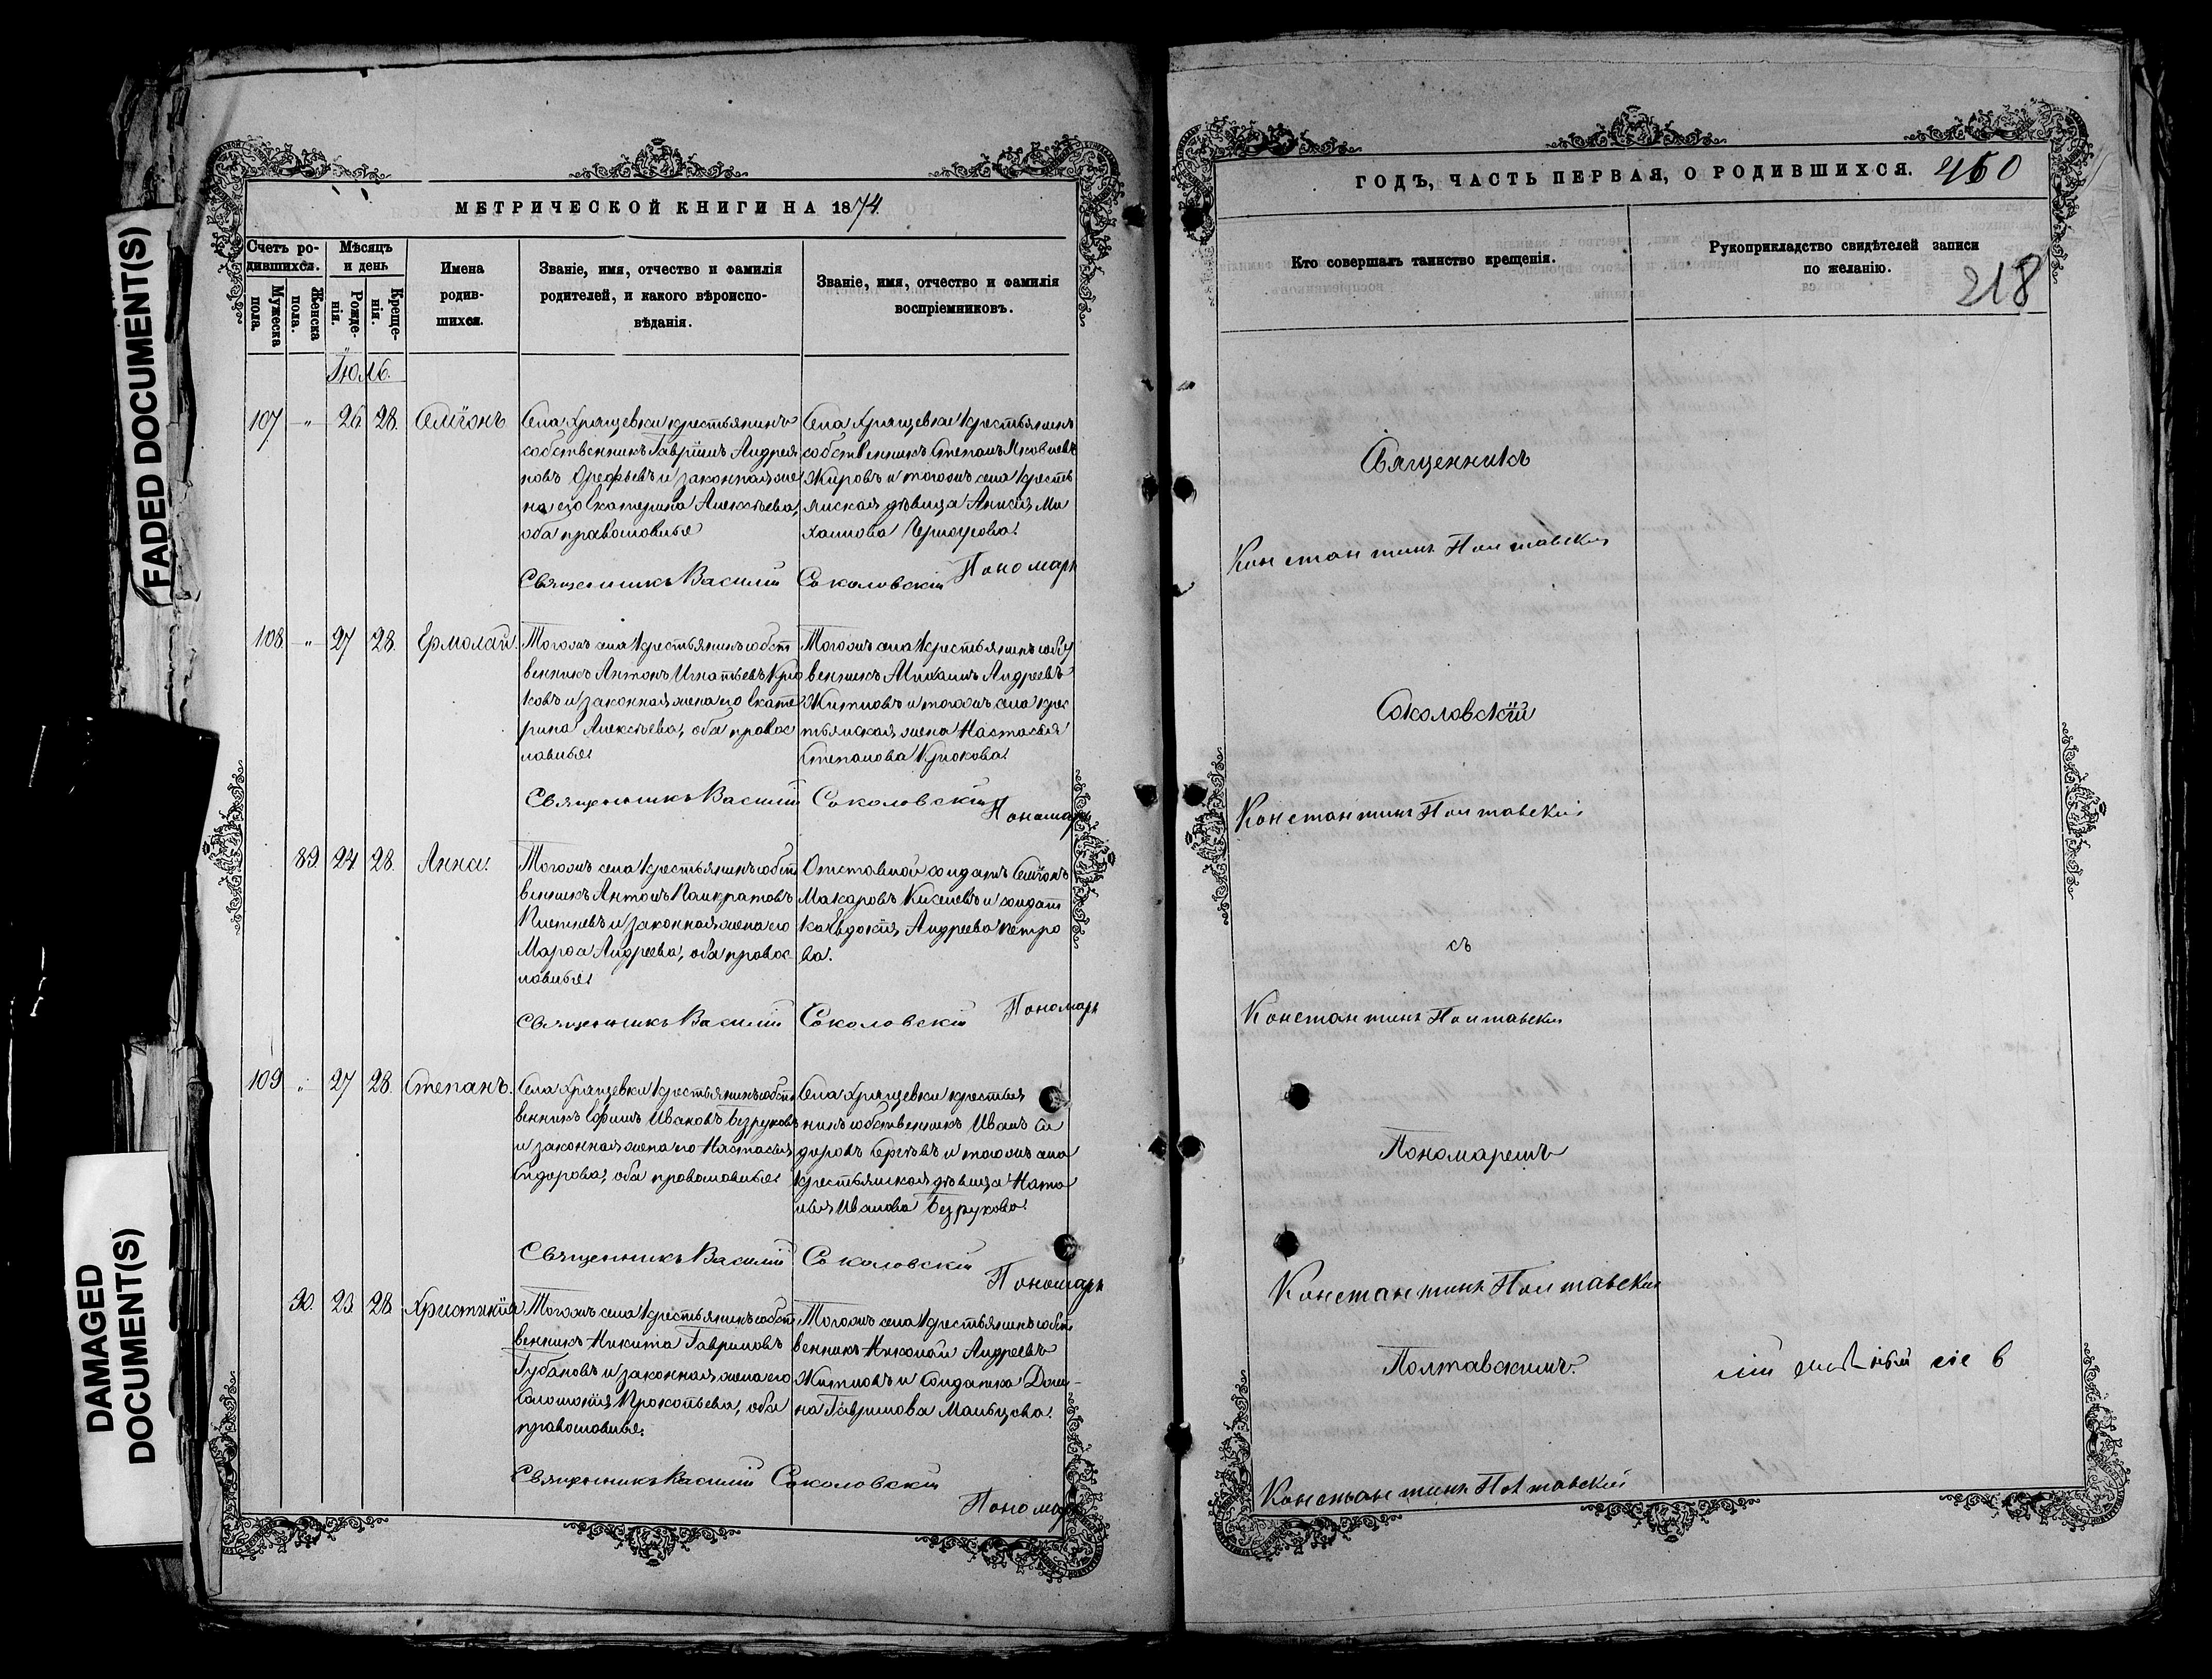 МЕТРИЧЕСКОЙ КНИГИ НА 1874.
Счетъ ро-
дившихся.
Мужеска пола.
Женска пола.
Мѣсяцъ
и день
Рожде-
нія.
Креще-
нія.
Имена
родив-
шихся.
Званіе, имя, отчество и фамилія
родителей, и какого вѣроиспо-
вѣданія.
Званіе, имя, отчество и фамилія
воспріемниковъ.
Іюль.
107 " 26 28. Симіонъ
Села Хрящевки крестьянинъ
собственникъ Гавріилъ Андрея
новъ Орефьевъ и законная же
на его Екатерина Алексѣева,
оба православные
Села Хрящевки крестьянинъ
собственникъ Степанъ Яковлевъ
Жировъ и тогожъ села кресть
янская дѣвица Анисія Ми
хаилова
Священникъ Василій Соколовскій Пономарь
108. " 27 28. Ермолай.
Тогожъ села крестьянинъ собст
венникъ Антонъ Игнатьевъ Крю
ковъ и законная жена его Екате
рина Алексѣева, оба правос
лавные
Тогожъ села крестьянинъ собст
венникъ Михаилъ Андреевъ
Житловъ и тогожъ села крес
тьянская жена Настасья
Степанова Крюкова.
Священникъ Василій Соколовскій Пономарь
89. 24 28. Анна.
Тогожъ села крестьянинъ собст
венникъ Антонъ Панкратовъ
Плетневъ и законная жена его
Марѳа Андреева, оба правос
лавные
Отставной солдатъ Симіонъ
Макаровъ Киселевъ и солдат
ка Евдокія Андреева Петро
ва.
Священникъ Василій Соколовскій Пономарь
109 " 27 28. Степанъ.
Села Хрящевки крестьянинъ собст
венникъ Ефимъ Ивановъ Безруковъ
и законная жена его Настасья
Сидорова, оба православные
Села Хрящевки крестья
нинъ собственникъ Иванъ Си
доровъ и тогожъ села
крестьянская дѣвица Ната
лья Иванова Безрукова.
Священникъ Василій Соколовскій
Пономарь
90. 23. 28. Христинія
Тогожъ села крестьянинъ собст
венникъ Никита Гавриловъ
Губановъ и законная жена его
Прокопьева, оба
православные.
Тогожъ села крестьянинъ собст
венникъ Николай Андреевъ
Житловъ и солдатка
Гаврилова Мальцева.
Священникъ Василій Соколовскій
Пономарь
ГОДЪ, ЧАСТЬ ПЕРВАЯ, О РОДИВШИХСЯ. 460
Кто совершалъ таинство крещенія.
Рукоприкладство свидѣтелей записи
по желанію.
218
Священникъ
Константинъ Полтавскій
Соколовскій
Константинъ Полтавскій
съ
Константинъ Полтавскій
Пономаремъ
Константинъ Полтавскій
Полтавскимъ.
Константинъ Полтавскій
FADED DOCUMENT(S)
DAMAGED
DOCUMENT(S)